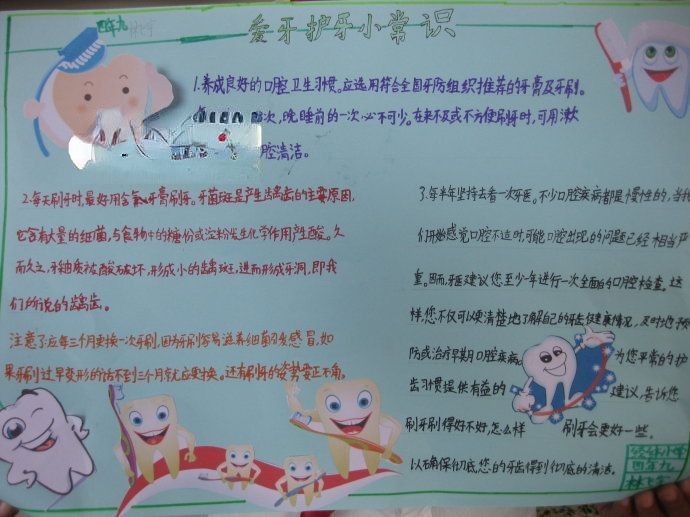 四年九
爱牙护牙小常识
1.养成良好的口腔卫生习惯。应选用符合全国牙防组织推荐的牙膏及牙刷。
次,晚睡前的一次必不可少。在来不及或不方便刷牙时,可用漱
腔清洁。
2.每天刷牙时,最好用含氟牙膏刷牙。牙菌斑是产生龋齿的主要原因,
它含有大量的细菌,与食物中的糖份或淀粉发生化学作用产生酸。久
而久之,牙釉质被酸破坏,形成小的龋斑,进而形成牙洞,即我
们所说的龋齿。
注意了:应每三月更换一次牙刷,因为牙刷容易滋养细菌引发感冒,如
果牙刷过早变形的话不到三个月就应更换。还有刷牙的姿势要正确。
3.每半年坚持去看一次牙医。不少口腔疾病都是慢性的,当我
们开始感觉口腔不适时,可能口腔出现的问题已经相当严
重。因而,牙医建议您至少一年进行一次全面的口腔检查。这
样,您不仅可以更清楚地了解自己的牙齿健康情况,及时地预
防或治疗早期口腔疾病。 为您平常的护
齿习惯提供有益的 建议,告诉您
刷牙刷得好不好,怎么样 刷牙会更好一些。
以确保彻底。您的牙齿得到彻底的清洁。
四年九